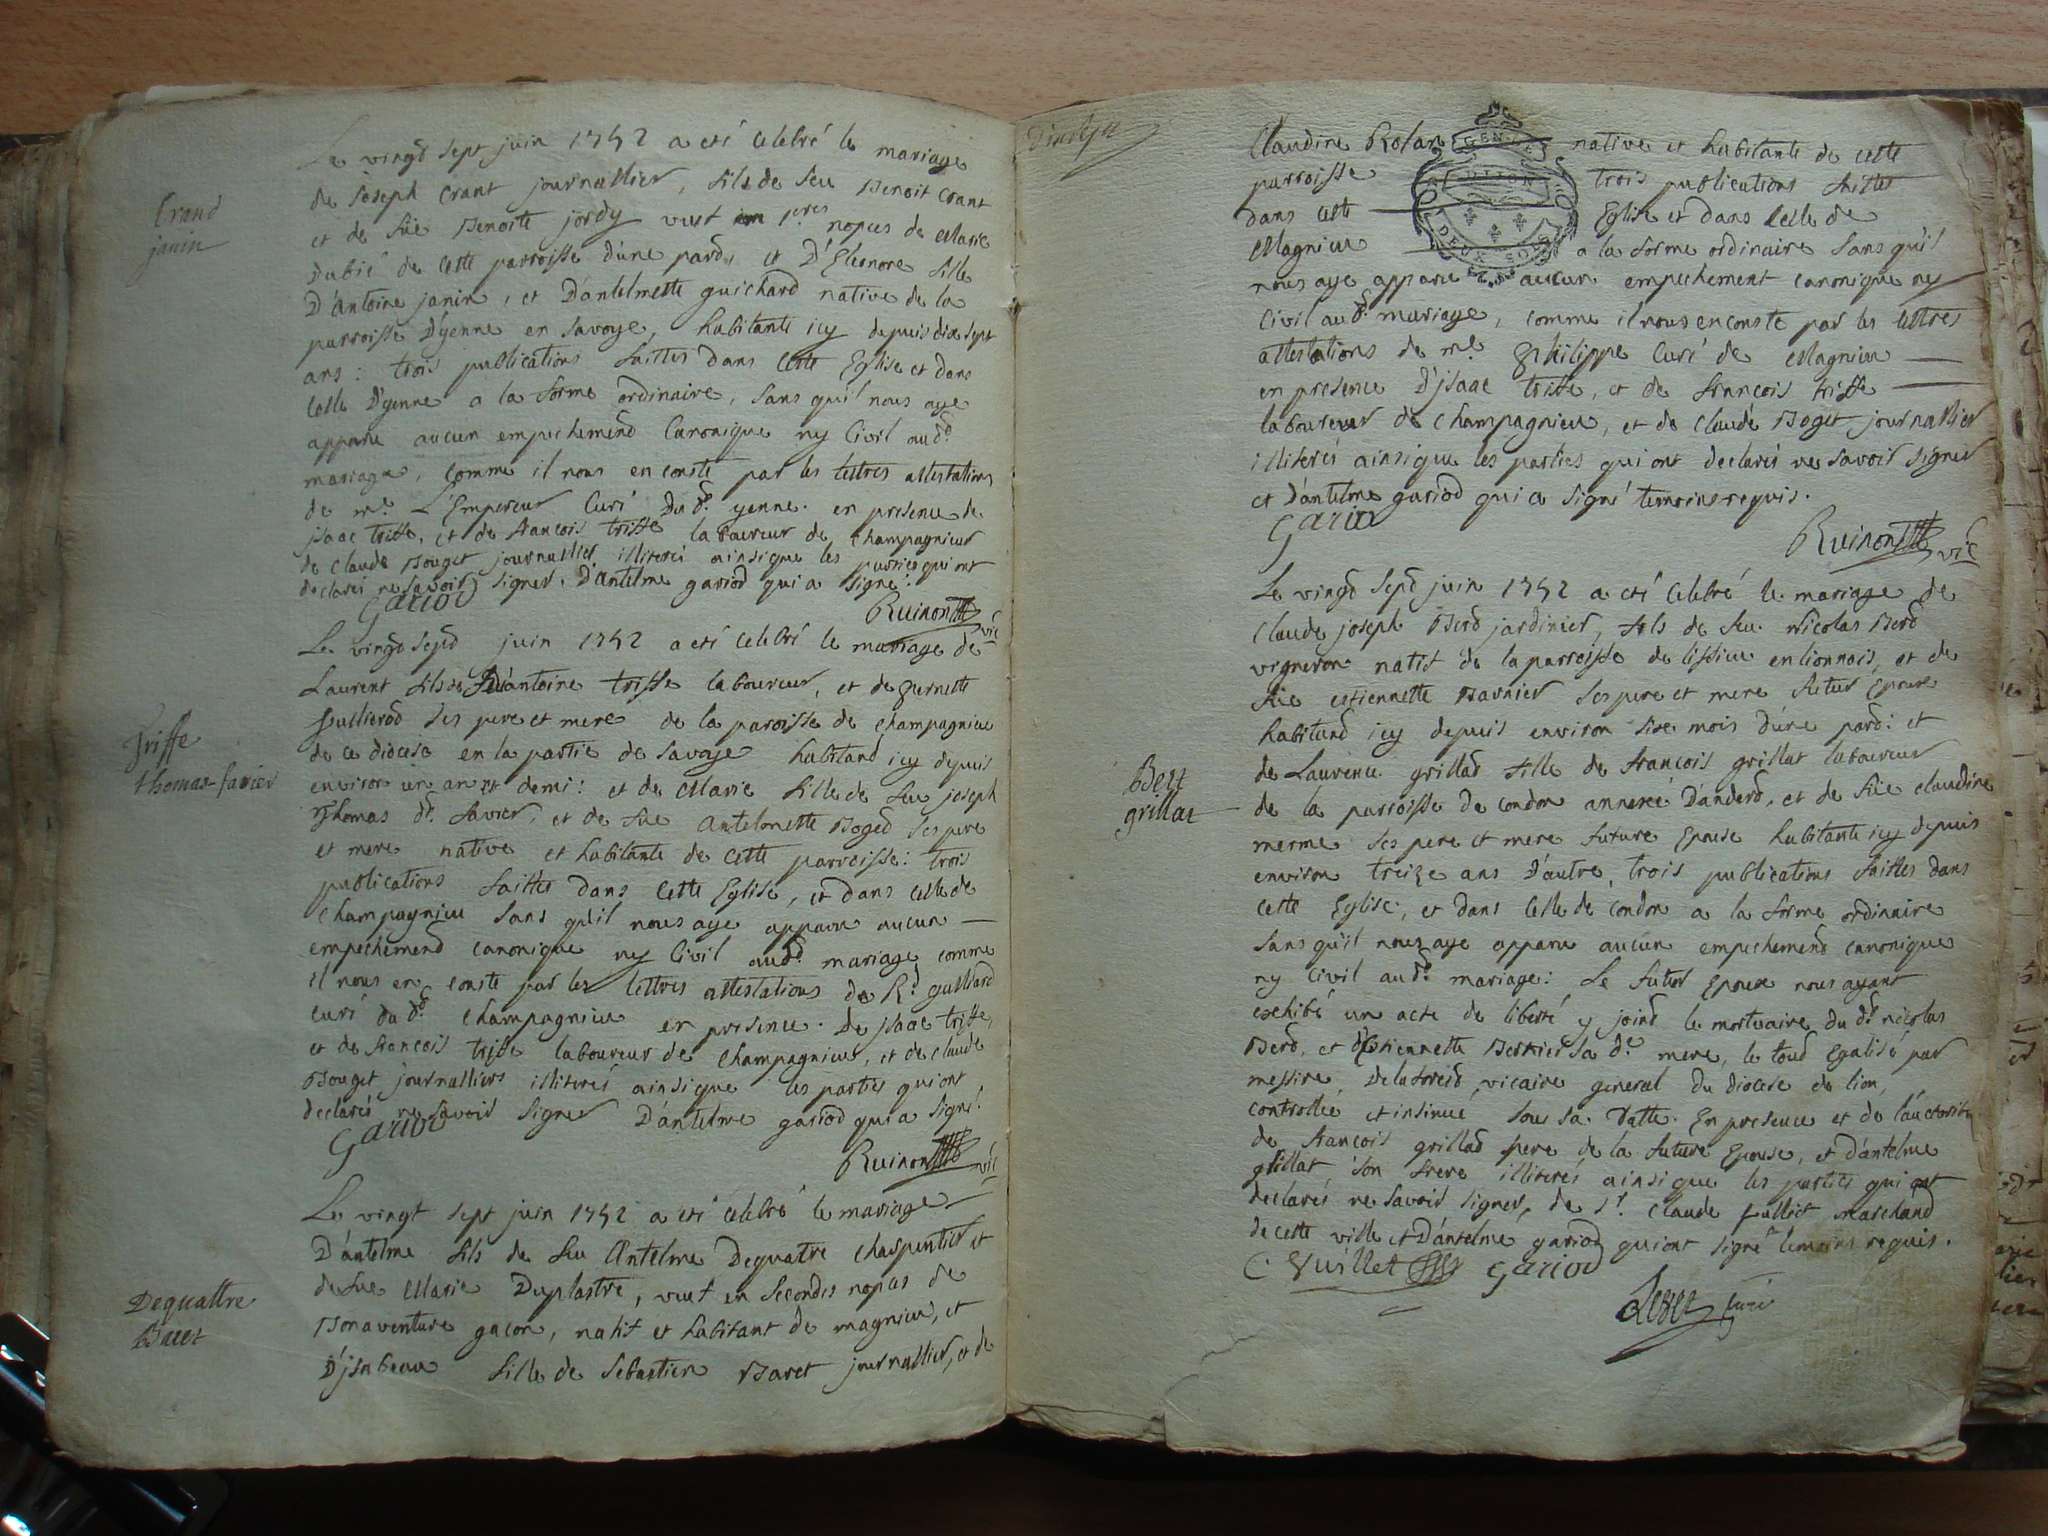 Crand
janin
Le vingt sept juin 1752 a eté celebré le mariage
de joseph Crant journallier, fils de feu Benoit Crant
et de füe Benoite jordy veuf en 1eres nopces de Marie
Dubié de cette parroisse d'une pard, et D'Eleonore fille
D'antoine janin, et D'antelmette guichard native de la
parroisse D'yenne en savoye, habitante icy depuis dix sept
ans: trois publications faittes dans cette Eglise et dans
celle D'yenne a la forme ordinaire, sans qu'il nous aye
apparu aucun empechemend Canonique ny Civil aud.
mariage, comme il nous en conste par les lettres attestations
de mre L'Empereur Curé dud. yenne. en presence de
jsaac triffe, et de francois triffe laboureur de Champagnieu
de Claude Bouget journallier illiterés ainsi que les parties qui ont
declarés ne savoir signer. D'antelme gariod qui a signé.
Gariod
Ruinon vic
Triffe
thomas favier
Le vingd sepd juin 1752 a eté celebré le mariage de
Laurent fils de D'antoine triffe laboureur, et de pernette
ses pere et mere de la paroisse de Champagnieu
de ce diocese en la partie de savoye habitand icy depuis
environ un an et demi: et de Marie fille de feu joseph
Thomas d. favier, et de füe Antelmette Boged ses pere
et mere native et habitante de cette parroisse: trois
publications faittes dans cette Eglise, et dans celle de
Champagnieu sans qu'il nous aye apparu aucun
empechemend canonique ny Civil aud. mariage comme
il nous en conste par les lettres attestations de Rd. galliard
curé dud. Champagnieu en presence. De jsaac triffe,
et de francois triffe laboureur de Champagnieu, et de Claude
Bouget journalliers illiterés ainsi que les parties qui ont
declarés ne savoir signer D'antelme gariod qui a signé.
Gariod
Ruinon vic
Dequattre
Baret
Le vingt sept juin 1752 a eté celebré le mariage
D'antelme fils de feu Antelme Dequatre Charpentier et
de füe Marie Duplastre, veuf en secondes nopces de
Bonaventure gacon, natif et habitant de magnieu, et
D'jsabeau fille de Sebastien Baret journallier, et de
Claudine native et habitante de cette
parroisse trois publications faittes
dans cette Eglise et dans celle de
Magnieu a la forme ordinaire sans qu'il
nous aye apparu aucun empechement canonique ny
Civil aud. mariage, comme il nous en conste par les lettres
attestations de mre philippe Curé de Magnieu
en presence D'jsaac triffe, et de francois triffe
laboureur de Champagnieu, et de Claude Boget journallier
illiterés ainsi que les parties qui ont declarés ne savoir signer
et D'antelme gariod qui a signé temoins requis.
Gariod
Ruinon vic
Bert
grillat
Le vingd sepd juin 1752 a eté celebré le mariage de
Claude joseph Berd jardinier, fils de feu Nicolas Berd
vigneron natif de la parroisse de lissieu en lionnois, et de
füe estiennette Barnier ses pere et mere futur Epoux
habitand icy depuis environ six mois d'une pard: et
de Laurence grillad fille de francois grillat laboureur
de la parroisse de condon annexée D'anderd, et de füe Claudine
merme ses pere et mere future Epouse habitante icy depuis
environ treize ans D'autre, trois publications faittes dans
cette Eglise, et dans celle de Condon a la forme ordinaire
sans qu'il nous aye apparu aucun empechemend canonique
ny civil aud. mariage: Le futur Epoux nous ayant
exhibé un acte de liberté y joind le mortuaire du d. nicolas
Berd, et d'Etiennette Bernier sa de. mere, le toud Egalisé par
messire vicaire general du diocese de lion,
controllée et insinué sous sa Datte. En presence et de l'auctorité
de francois grillad pere de la future Epouse, et D'antelme
grillat son frere illiterés ainsi que les parties qui ont
declarés ne savoir signer, de sr. Claude Marchand
de cette ville et D'antelme gariod qui ont signé temoins requis.
C. Vuillet Gariod
curé